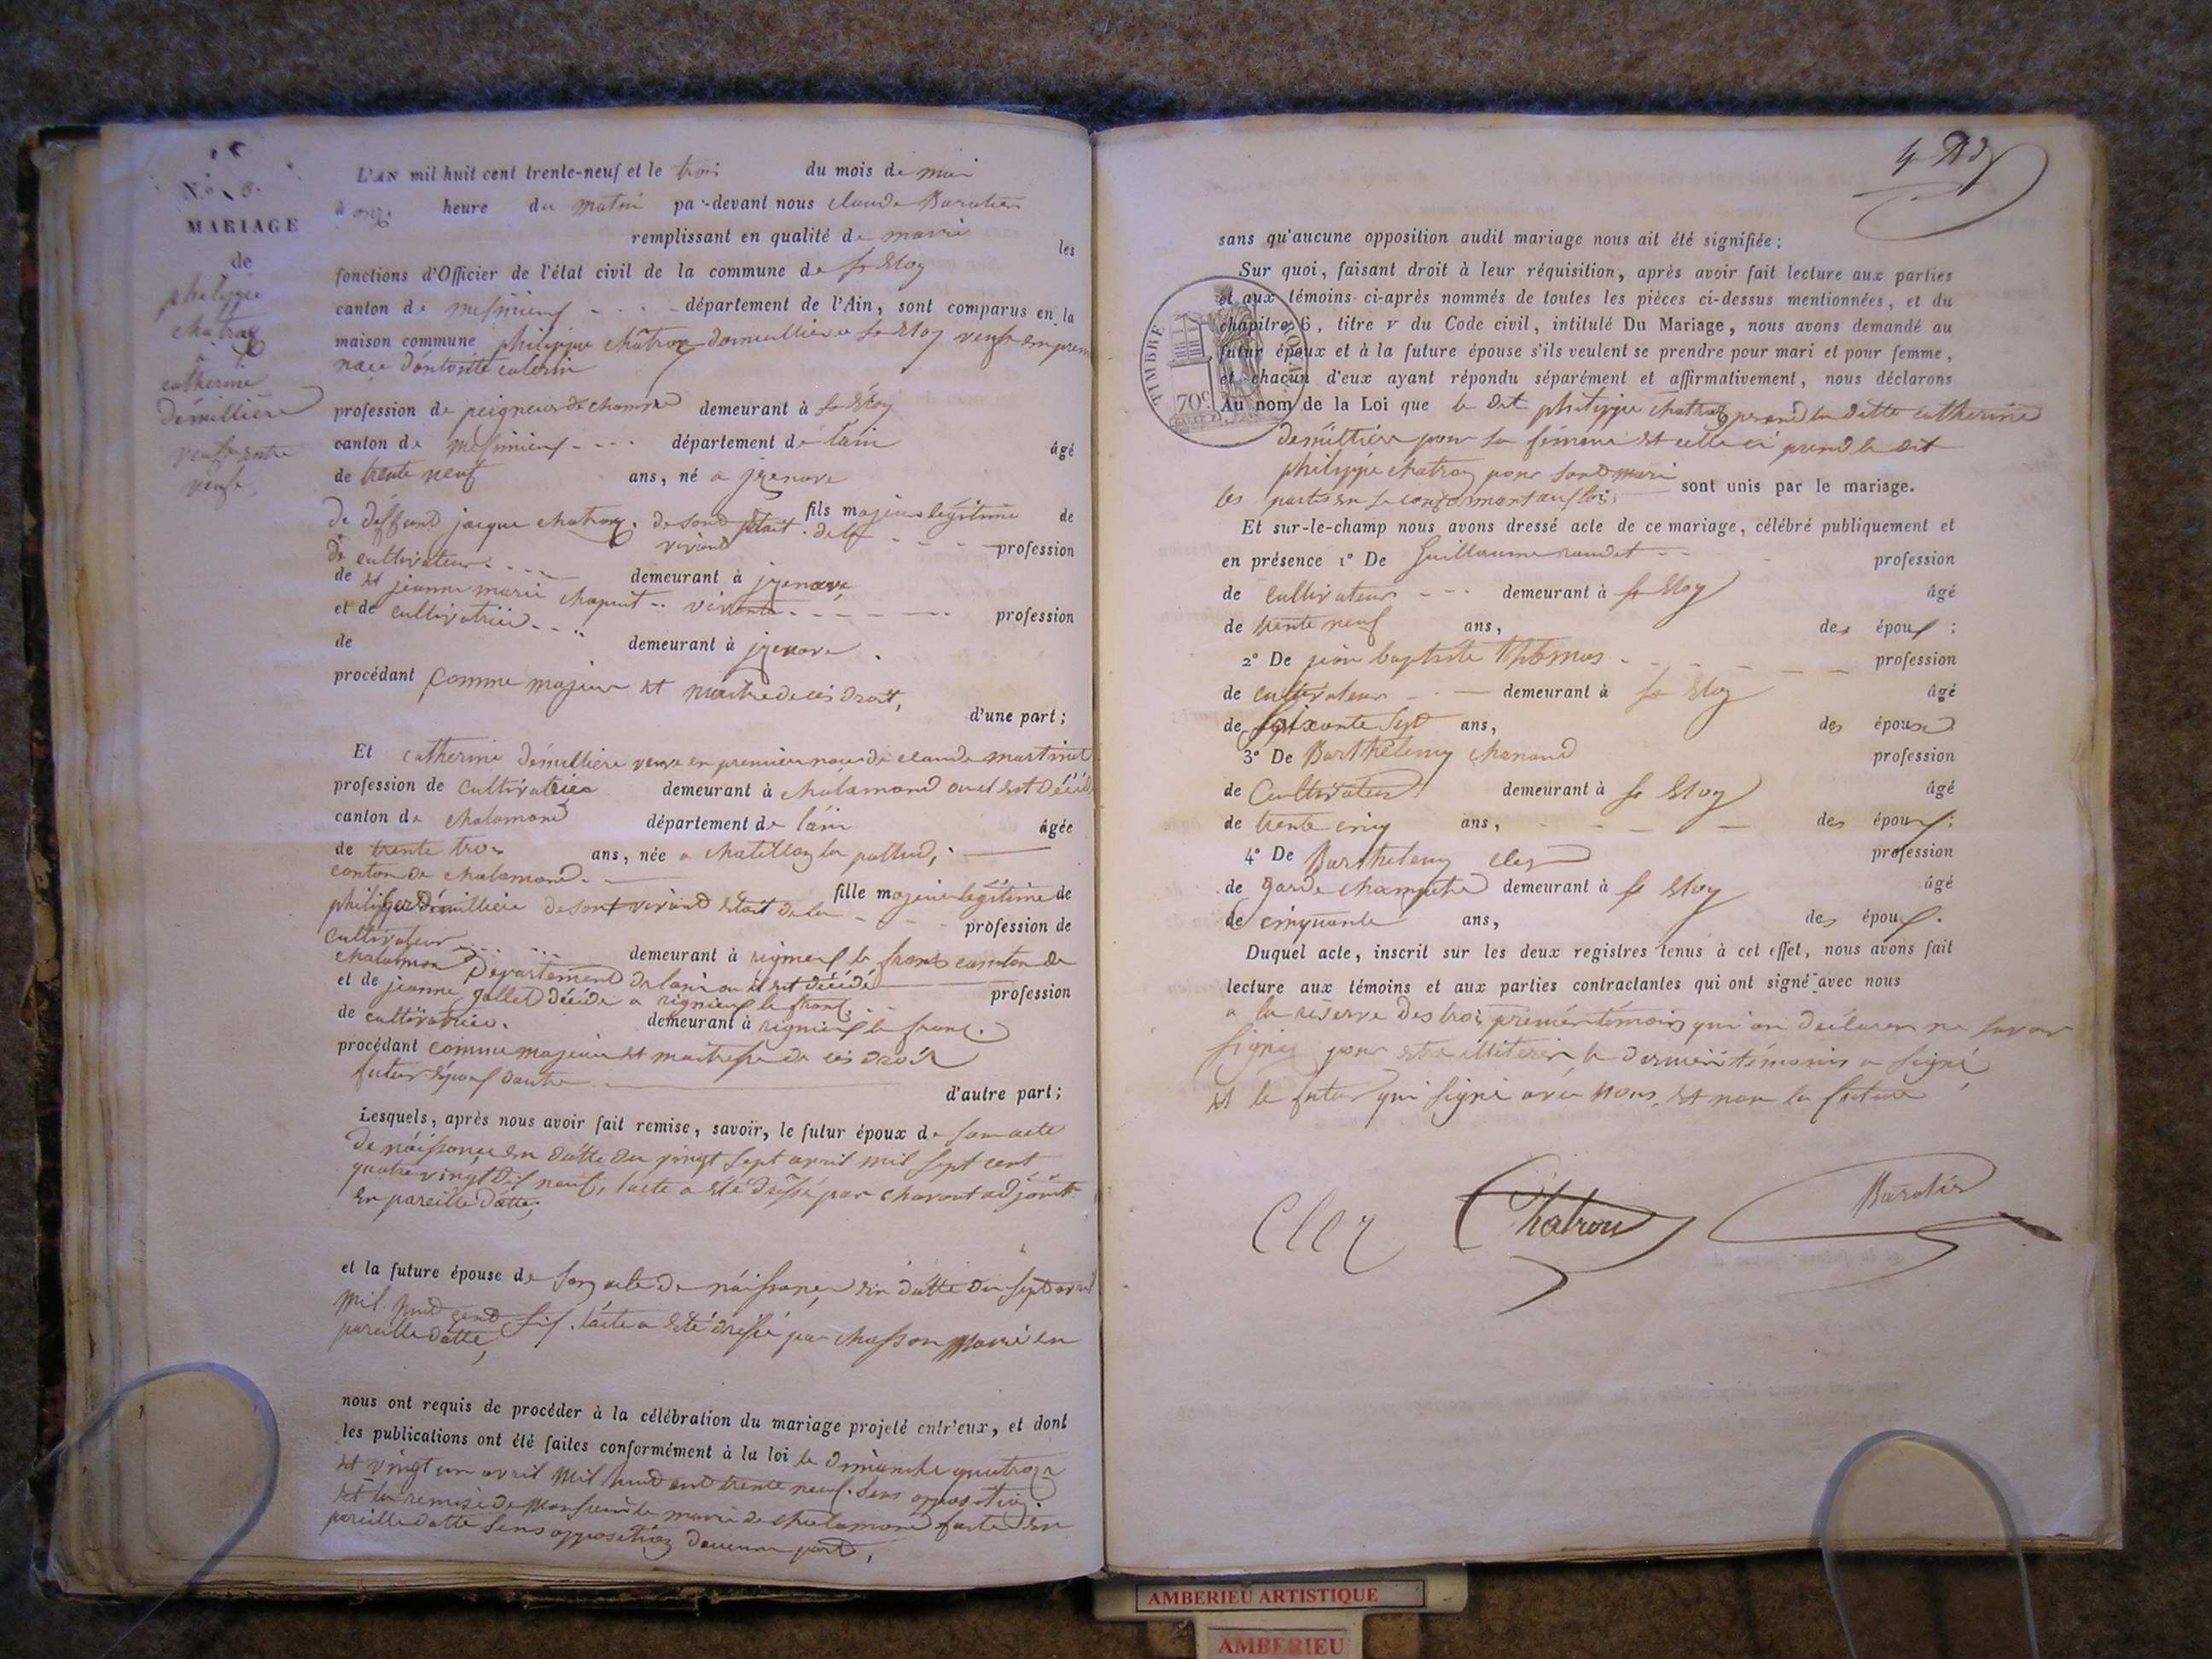 N.º 5.
MARIAGE
de
philippe
chatron
à
catherine
démillière
veuf entre
veufe
L'AN mil huit cent trente-neuf et le trois du mois de mai
à onze heure du matin par-devant nous claude Baratier
remplissant en qualité de maire les
fonctions d'Officier de l'état civil de la commune de st Eloy
canton de mesimieux département de l'Ain, sont comparus en la
maison commune philippe chatron domicillié a st Eloy veuf en prem
nace
profession de peigneur de chanvre demeurant à st Eloy
canton de mesimieux département de lain âgé
de trente neuf ans, né a jzenave
fils majeur légitime de
de deffunt jacque chatron de sond vivand était de la profession
de cultivateur
de demeurant à jzenave
et de jeanne marie chapuit vivante profession
de cultivatrice demeurant à jzenave
procédant comme majeur et maitre de ces droit,
d'une part;
Et catherine démillière veuve en premier nace de claude martinet
profession de cultivatrice demeurant à chalamond ou il est décéd
canton de chalamond département de lain âgée
de trente trois ans, née a chatillon la pallud,
canton de chalamond
fille majeur légitime de
philipe démillière de sont vivand etait de la profession de
cultivateur demeurant à rignieux le franc canton de
chalamon Departement de lain ou il est décédé
et de jeanne gallet décédé a rignieux le franc profession
de cultivatrice. demeurant à rignieux le franc.
procédant comme majeur et maitresse de ces droit
futur époux dautre
d'autre part;
Lesquels, après nous avoir fait remise, savoir, le futur époux de son acte
de naissance en datte du vingt sept avril mil sept cent
quatre vingt dix neuf, lacte a été dressé par chavant adjoint
en pareille datte,
et la future épouse de son acte de naissance en datte du sept avril
mil huit cent six. lacte a été dressé par chasson maire en
pareille datte,
nous ont requis de procéder à la célébration du mariage projeté entr'eux, et dont
les publications ont été faites conformément à la loi le dimanche quatorze
et vingt un avril mil huit cent trente neuf. sens opposition
et la remise de monsieur le maire de chalamond faite en
pareille datte sens opposition daucune part,
sans qu'aucune opposition audit mariage nous ait été signifiée:
Sur quoi, faisant droit à leur réquisition, après avoir fait lecture aux parties
et aux témoins ci-après nommés de toutes les pièces ci-dessus mentionnées, et du
chapitre 6, titre v du Code civil, intitulé Du Mariage, nous avons demandé au
futur époux et à la future épouse s'ils veulent se prendre pour mari et pour femme,
et chacun d'eux ayant répondu séparément et affirmativement, nous déclarons
TIMBRE ROYAL
70c.
Au nom de la Loi que le dit philippe chatron prend la ditte catherine
demillière pour sa fémme et celle ci prend le dit
philippe chatron pour sond mari
les partis en se conformant au lois sont unis par le mariage.
Et sur-le-champ nous avons dressé acte de ce mariage, célébré publiquement et
en présence 1º De Guillaume profession
de cultivateur demeurant à st Eloy âgé
de trente neuf ans, des époux;
2º De jean baptiste Thomas profession
de cultivateur demeurant à st Eloy âgé
de soixante sept ans, des époux
3º De Barthélemy chanand profession
de Cultivateur demeurant à st Eloy âgé
de trente cinq ans, des époux;
4º De Barthelemy Cler profession
de garde champetre demeurant à st Eloy âgé
de cinquante ans, des époux.
Duquel acte, inscrit sur les deux registres tenus à cet effet, nous avons fait
lecture aux témoins et aux parties contractantes qui ont signé avec nous
a la réserve des trois premier témoins qui on déclaren ne savoir
signer pour etre illiterer, le dernier témoins a signé
et le futur qui signé avec nous, et non la future
Cler Chatron Baratier
AMBERIEU ARTISTIQUE
AMBERIEU